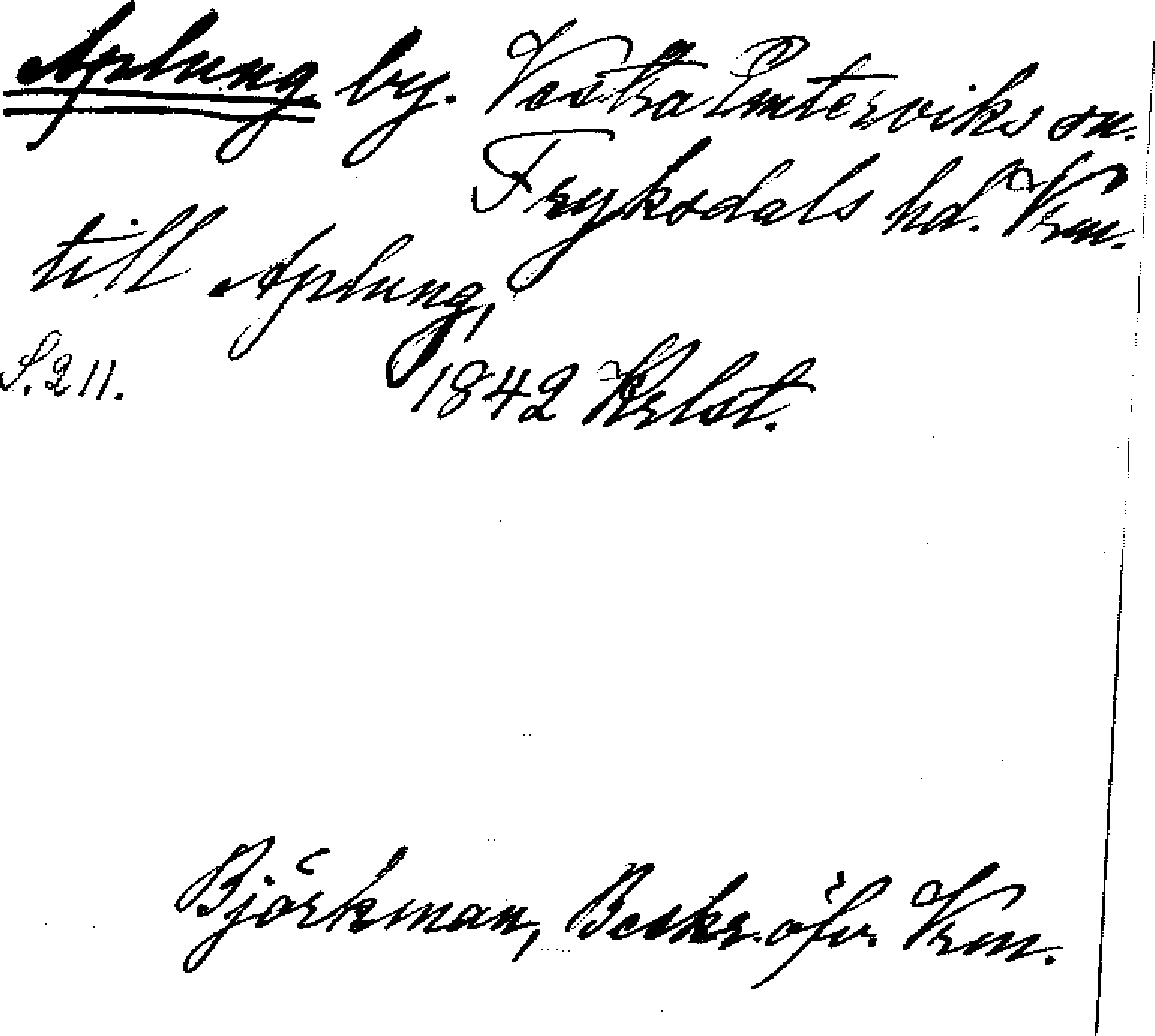 Aplung by. Vestra Emterviks sn.
Fryksdals hd. Vrm.
till Aplung,
S. 211. 1842 Krlst.
Björkman, Beskr. öfv. Vrm.